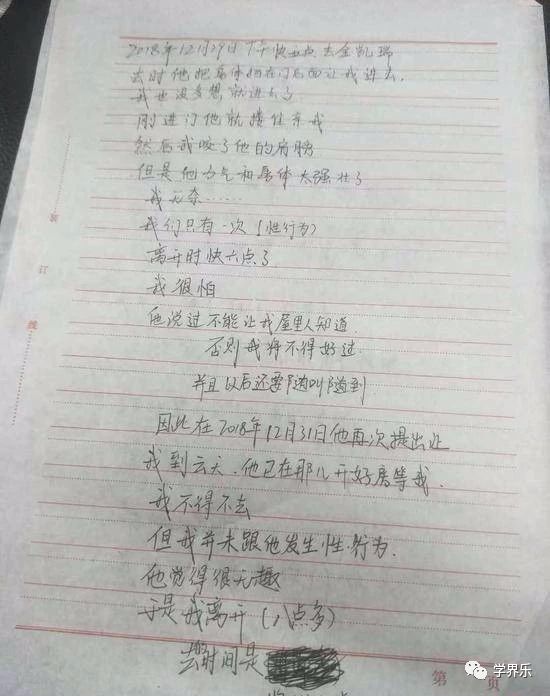 2018年12月29日下午快五点去金凯瑞
去时他把身体挡在门后面让我进去.
我也没多想就进去了
刚进门他就搂住亲我
然后我咬了他的肩膀
但是他力气和身体太强壮了
我无奈……
我们只有一次(性行为)
离开时快六点了
我很怕
他说过不能让我屋里人知道.
否则我将不得好过
并且以后还要随叫随到
因此在2018年12月31日他再次提出让
我到云天.他已在那儿开好房等我.
我不得不去
但我并未跟他发生性行为.
他觉得很无趣
于是我离开(八点多)
去时间是
装
订
线
第 页
学界乐